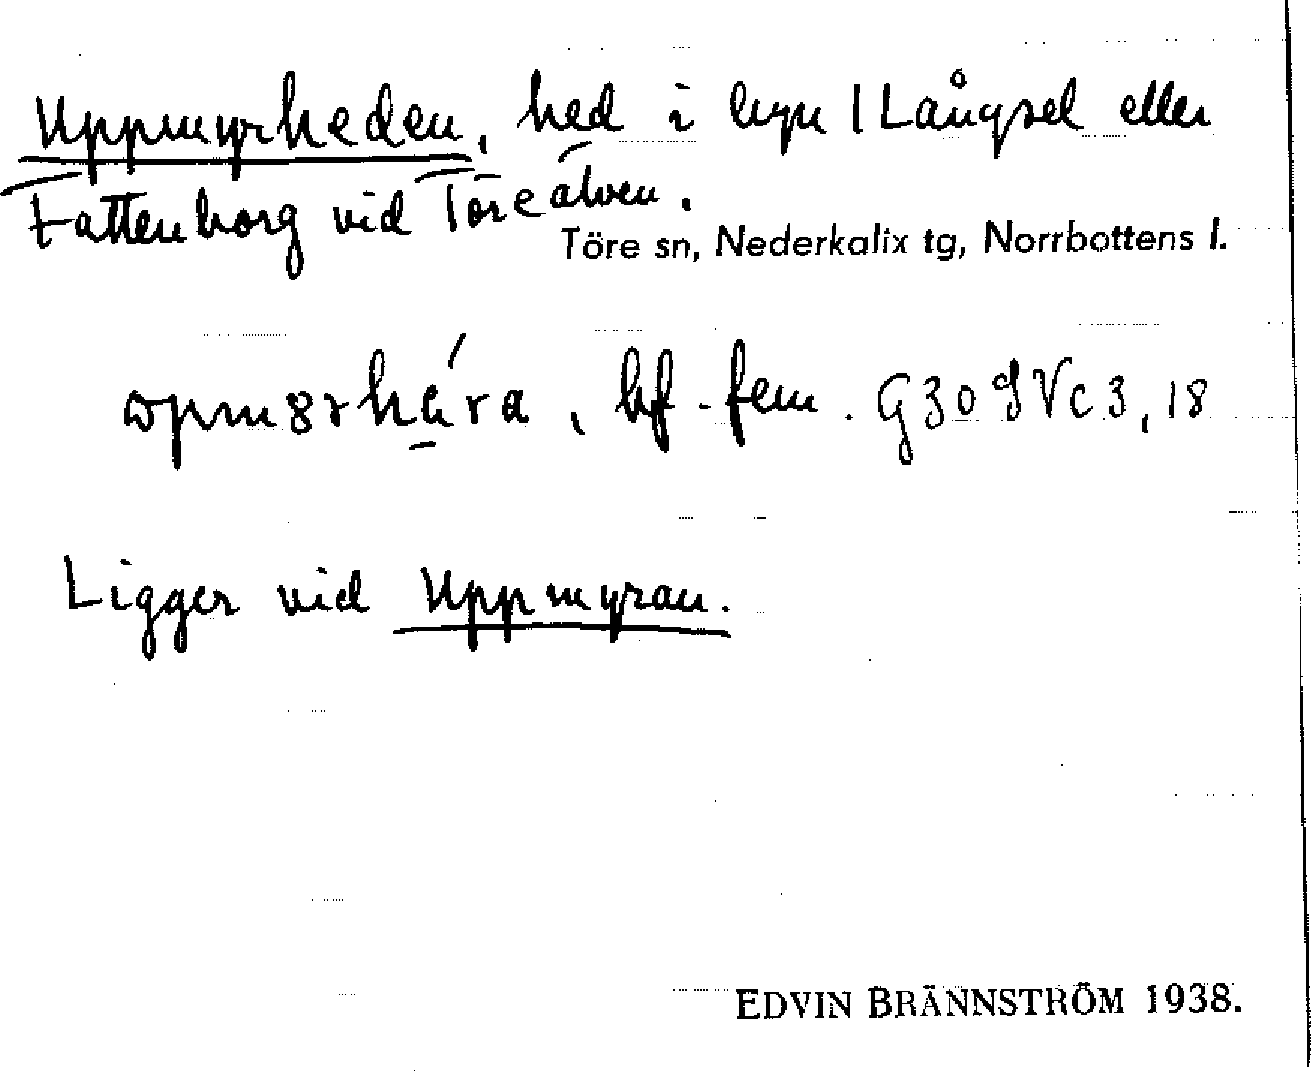 Uppmyrheden, hed i byn 1 Långsel eller
Fattenborg vid Töreälven.
Töre sn, Nederkalix tg, Norrbottens l.
bf. fem. G30 IVc3, 18
Ligger vid Uppmyran.
EDVIN BRÄNNSTRÖM 1938.